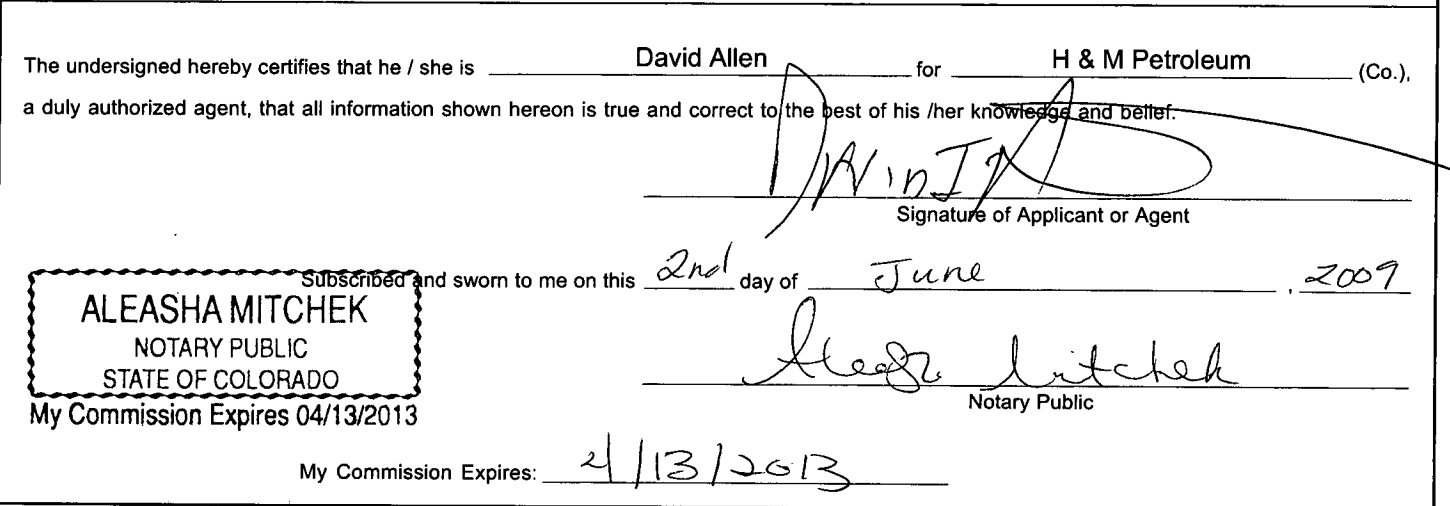 The undersigned hereby certifies that he / she is David Allen for H & M Petroleum (Co.),
a duly authorized agent, that all information shown hereon is true and correct to the best of his /her knowledge and belief.
Signature of Applicant or Agent
Subscribed and sworn to me on this 2nd day of June , 2009
ALEASHA MITCHEK
NOTARY PUBLIC
STATE OF COLORADO
My Commission Expires 04/13/2013
Notary Public
My Commission Expires: 4/13/2013